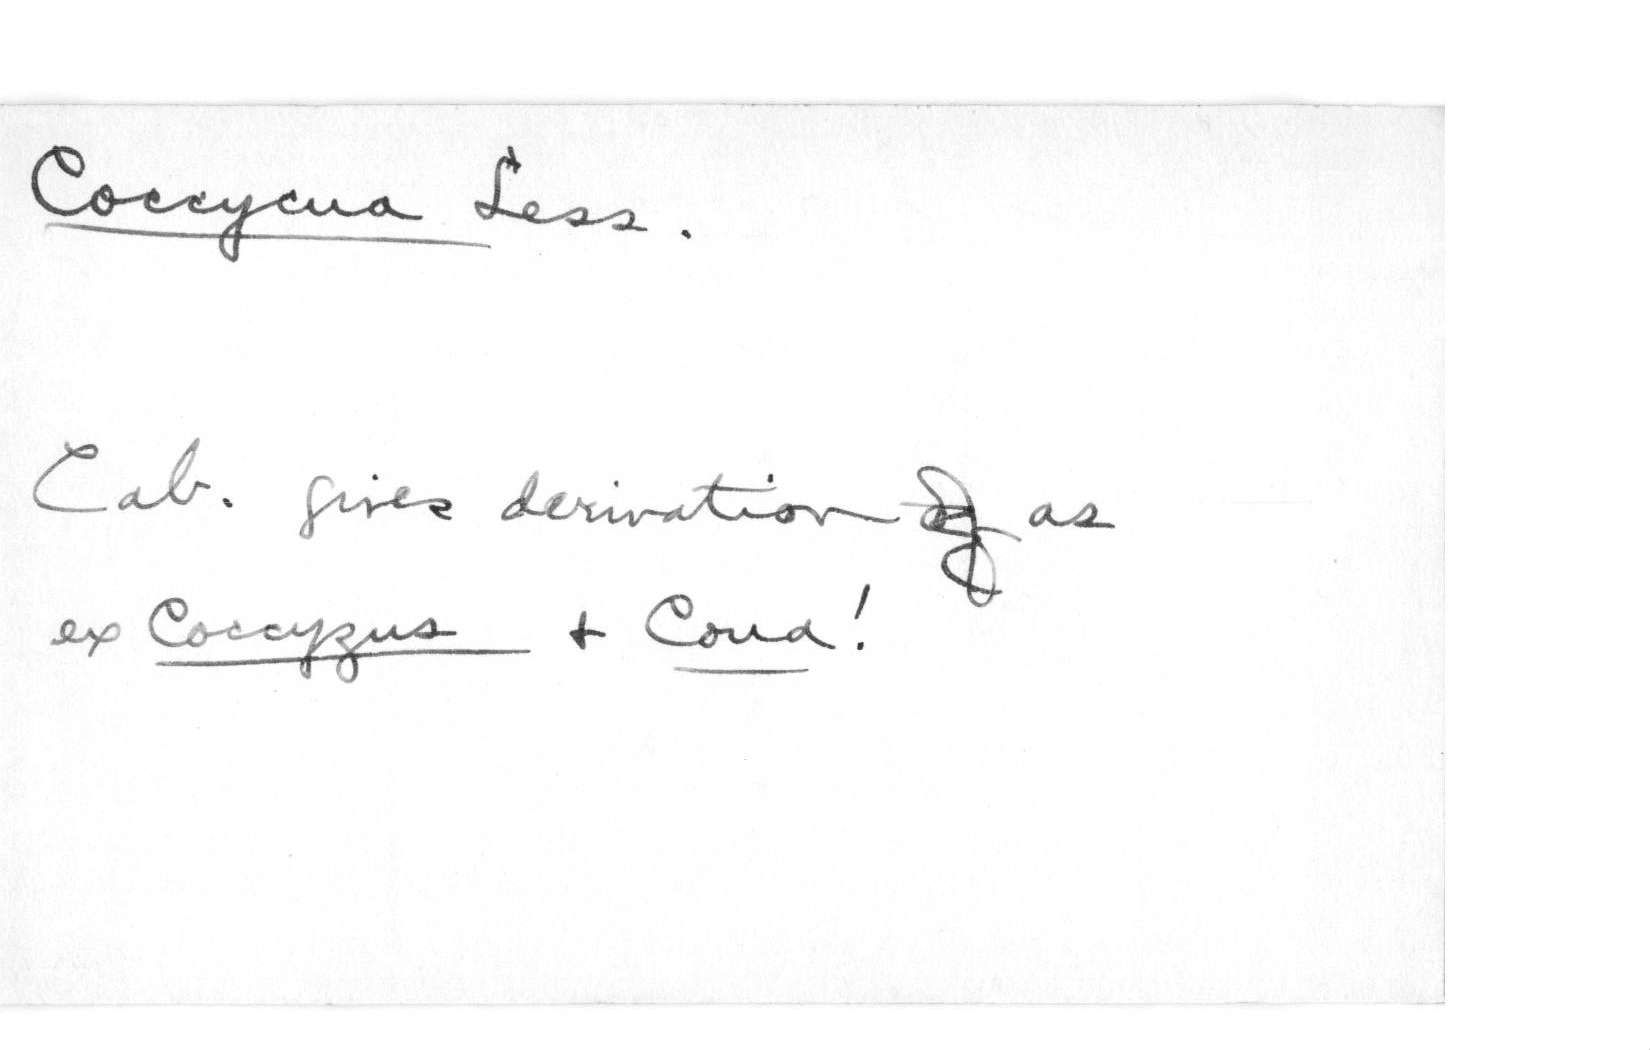 Coccycua Less.
Cab. gives derivation as
ex Coccyzus + Coua!